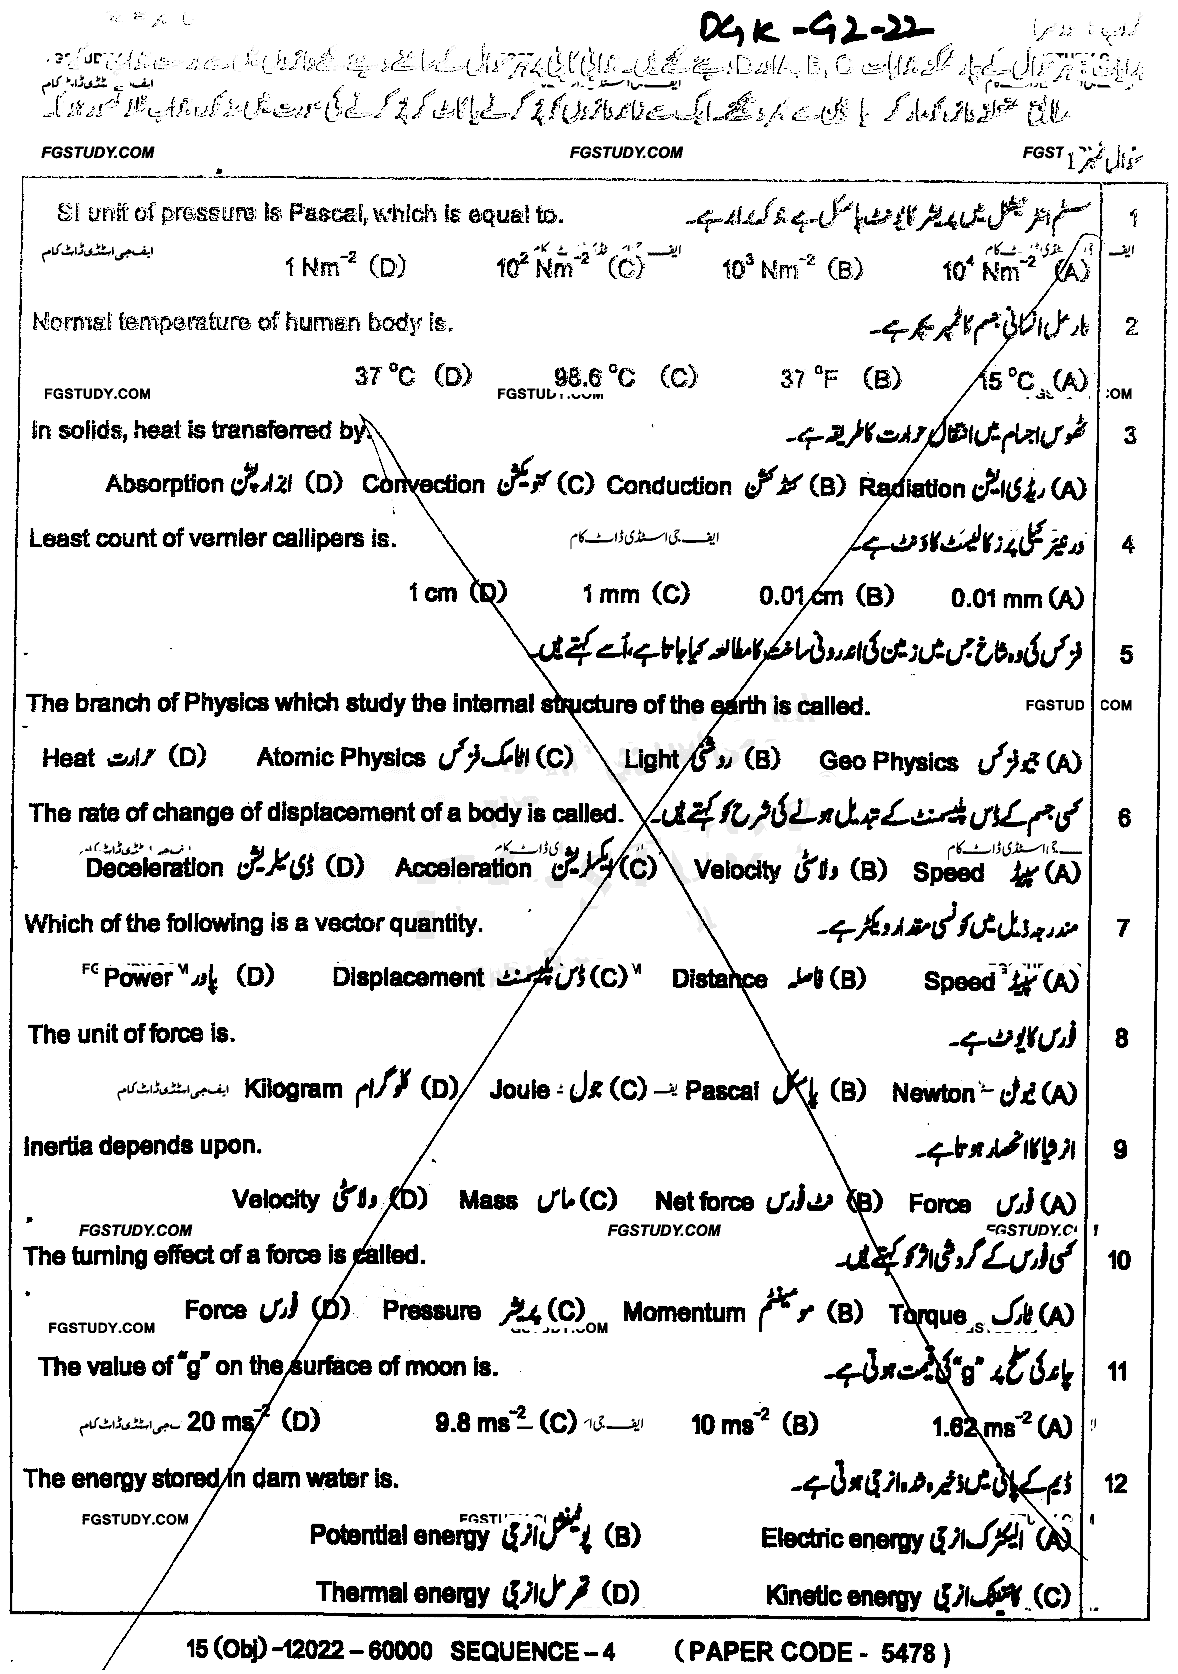 DGK-G2-22
FGSTUDY.COM FGSTUDY.COM FGST سوال نمبر 1
SI unit of pressure is Pascal, which is equal to. سسٹم انٹرنیشنل میں پریشر کا یونٹ پاسکل ہے جو کہ برابر ہے۔ 1
ایف جی اسٹڈی ڈاٹ کام
1 Nm⁻² (D) 10² Nm⁻² (C) 10³ Nm⁻² (B) 10⁴ Nm⁻² (A)
Normal temperature of human body is. نارمل انسانی جسم کا ٹمپریچر ہے۔ 2
37 °C (D) 98.6 °C (C) 37 °F (B) 15 °C (A)
FGSTUDY.COM FGSTUDY.COM COM
In solids, heat is transferred by. ٹھوس اجسام میں انتقال حرارت کا طریقہ ہے۔ 3
Absorption ابزارپشن (D) Convection کنویکشن (C) Conduction کنڈکشن (B) Radiation ریڈی ایشن (A)
Least count of vernier callipers is. ایف جی اسٹڈی ڈاٹ کام ورنیئر کیلی پرز کا لیسٹ کاؤنٹ ہے۔ 4
1 cm (D) 1 mm (C) 0.01 cm (B) 0.01 mm (A)
فزکس کی وہ شاخ جس میں زمین کی اندرونی ساخت کا مطالعہ کیا جاتا ہے، اُسے کہتے ہیں۔ 5
The branch of Physics which study the internal structure of the earth is called. FGSTUD COM
Heat حرارت (D) Atomic Physics اٹامک فزکس (C) Light روشنی (B) Geo Physics جیو فزکس (A)
The rate of change of displacement of a body is called. کسی جسم کے ڈس پلیسمنٹ کے تبدیل ہونے کی شرح کو کہتے ہیں۔ 6
Deceleration ڈی سلریشن (D) Acceleration ایکسلریشن (C) Velocity ولاسٹی (B) Speed سپیڈ (A)
Which of the following is a vector quantity. مندرجہ ذیل میں کونسی مقدار ویکٹر ہے۔ 7
Power پاور (D) Displacement ڈس پلیسمنٹ (C) Distance فاصلہ (B) Speed سپیڈ (A)
The unit of force is. فورس کا یونٹ ہے۔ 8
ایف جی اسٹڈی ڈاٹ کام Kilogram کلوگرام (D) Joule جول (C) Pascal پاسکل (B) Newton نیوٹن (A)
Inertia depends upon. انرشیا کا انحصار ہوتا ہے۔ 9
Velocity ولاسٹی (D) Mass ماس (C) Net force نٹ فورس (B) Force فورس (A)
FGSTUDY.COM FGSTUDY.COM FGSTUDY.C
The turning effect of a force is called. کسی فورس کے گردشی اثر کو کہتے ہیں۔ 10
Force فورس (D) Pressure پریشر (C) Momentum مومینٹم (B) Torque ٹارک (A)
FGSTUDY.COM
The value of "g" on the surface of moon is. چاند کی سطح پر "g" کی قیمت ہوتی ہے۔ 11
20 ms⁻² (D) 9.8 ms⁻² (C) 10 ms⁻² (B) 1.62 ms⁻² (A)
The energy stored in dam water is. ڈیم کے پانی میں ذخیرہ شدہ انرجی ہوتی ہے۔ 12
FGSTUDY.COM
Potential energy پوٹینشل انرجی (B) Electric energy الیکٹرک انرجی (A)
Thermal energy تھرمل انرجی (D) Kinetic energy کائینیٹک انرجی (C)
15 (Obj) -12022 - 60000 SEQUENCE - 4 (PAPER CODE - 5478)